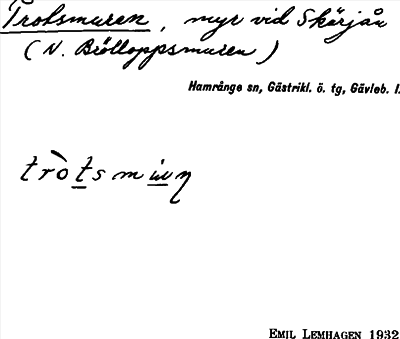 Trotsmuren, myr vid Skärjån
(N. Brölloppsmuren)
Hamrånge sn, Gästrikl. ö. tg, Gävleb. l.
EMIL LEMHAGEN 1932